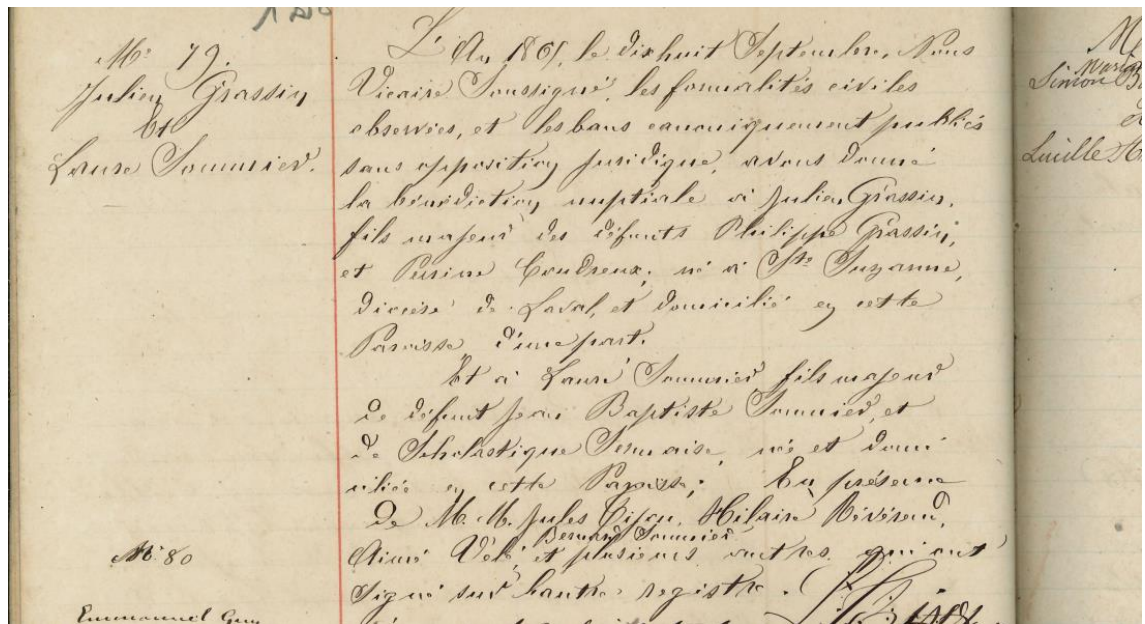 M: 79.
Julien Grassin
Et
Laure Sommier.
L'An 1861, le dixhuit Septembre, Nous
Vicaire Soussigné, les formalités civiles
observées, et les bans canoniquement publiés
sans opposition juridique, avons donné
la bénédiction nuptiale à Julien Grassin,
fils majeur des défunts Philippe Grassin,
et Perrine Coudreux, né à Ste Suzanne,
diocèse de Laval, et domicilié en cette
Paroisse d'une part.
Et à Laure Sommier, fils majeur
de défunt Jean Baptiste Sommier, et
de Scholastique Sermaise, née et domi
ciliée en cette Paroisse; En présence
De M. M. Jules Hilaire Révérend,
Bernard Sommier
Aimé et plusieurs autres qui ont
signé sur l'autre registre.
M: 80
Emmanuel Guy
M
Maria
Simon
et
Lucille